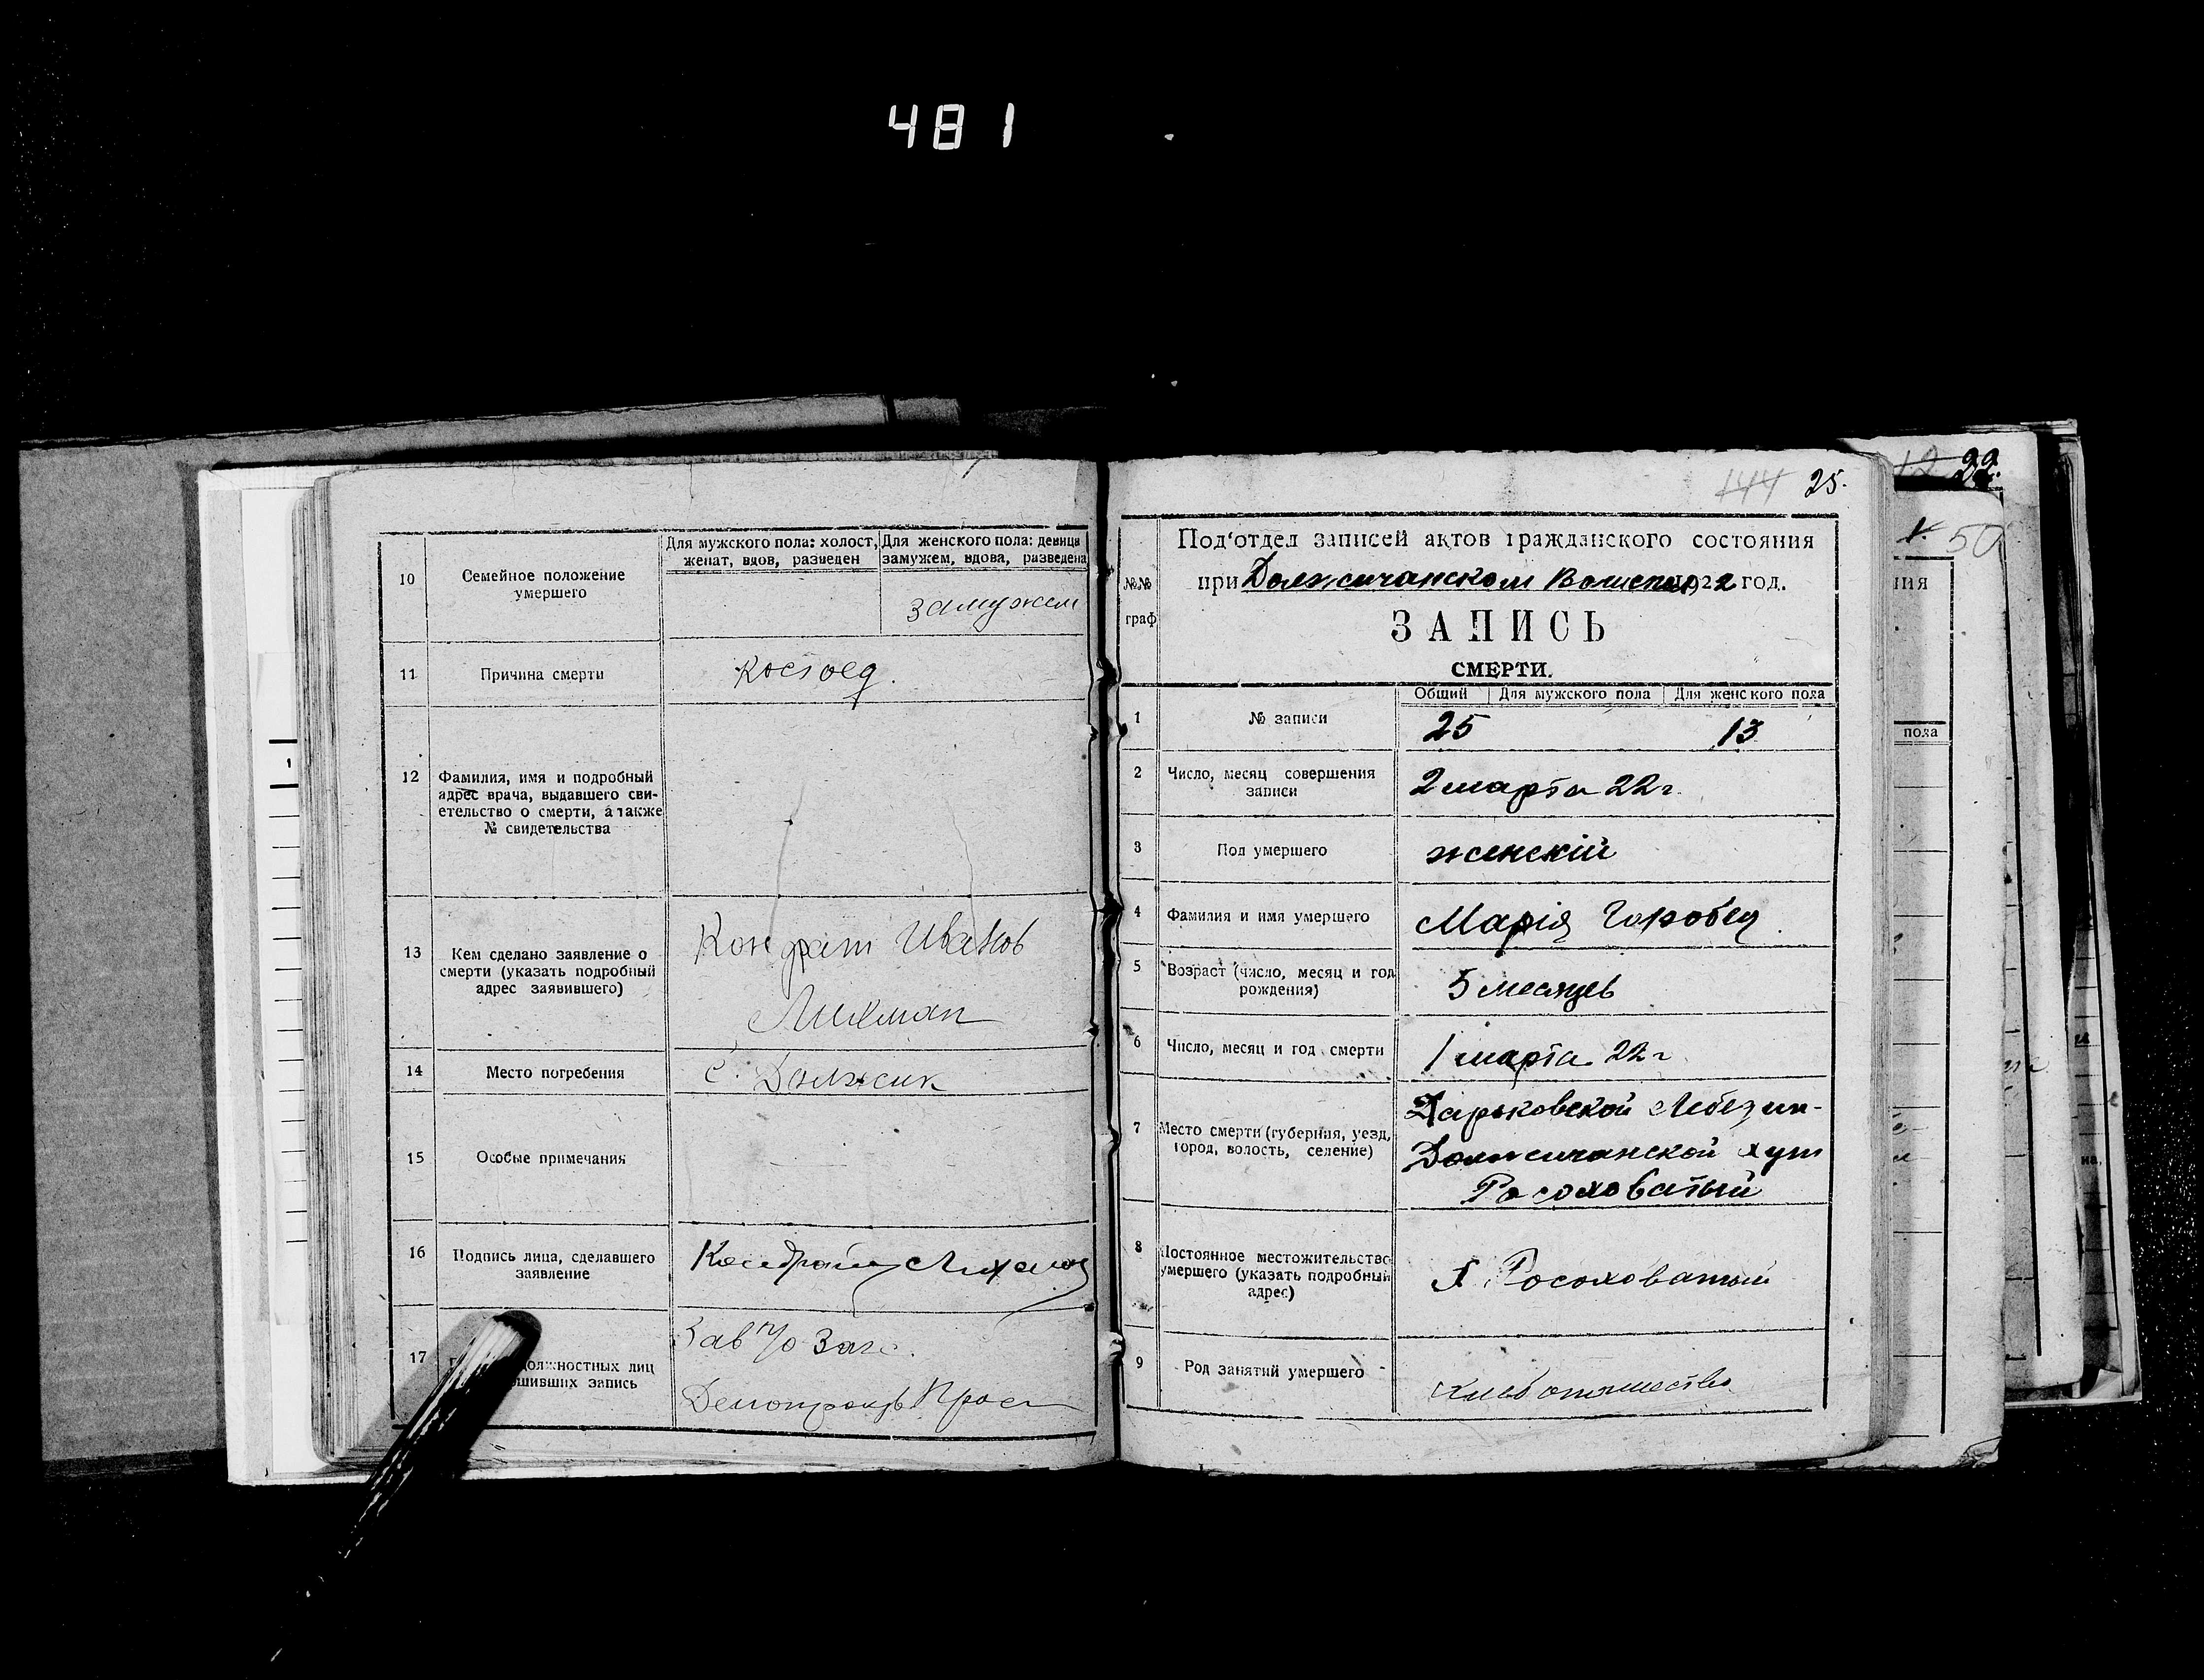 481
10
Семейное положение
умершего
Для мужского пола: холост,
женат, вдов, разведен
Для женского пола: девица
замужем, вдова, разведена
замужем
11
Причина смерти
костоед.
12
Фамилия, имя и подробный
адрес врача, выдавшего сви-
етельство о смерти, а также
№ свидетельства
13
Кем сделано заявление о
смерти (указать подробный
адрес заявившего)
Кондрат Иванов
14
Место погребения
с. Должик
15
Особые примечания
16
Подпись лица, сделавшего
заявление
Кондрат
17
должностных лиц
шивших запись
Зав п/о Загс.
144 25.
№№
граф
Под‘отдел записей актов гражданского состояния
при Должичанском 1922 год.
ЗАПИСЬ
СМЕРТИ.
Общий
Для мужского пола
Для женского пола
1
№ записи
25
13
2
Число, месяц совершения
записи
2 марта 22 г.
3
Пол умершего
женскій
4
Фамилия и имя умершего
Марія Горобец.
5
Возраст (число, месяц и год
рождения)
5 месяцев
6
Число, месяц и год смерти
1 марта 22 г
7
Место смерти (губерния, уезд,
город, волость, селение)
Харьковской Лебедин-
Должичанской хут
Росоховатый
8
Постоянное местожительство
умершего (указать подробный
адрес)
х. Росоховатый
9
Род занятий умершего
хлебопашество
22.
50
ния
пола